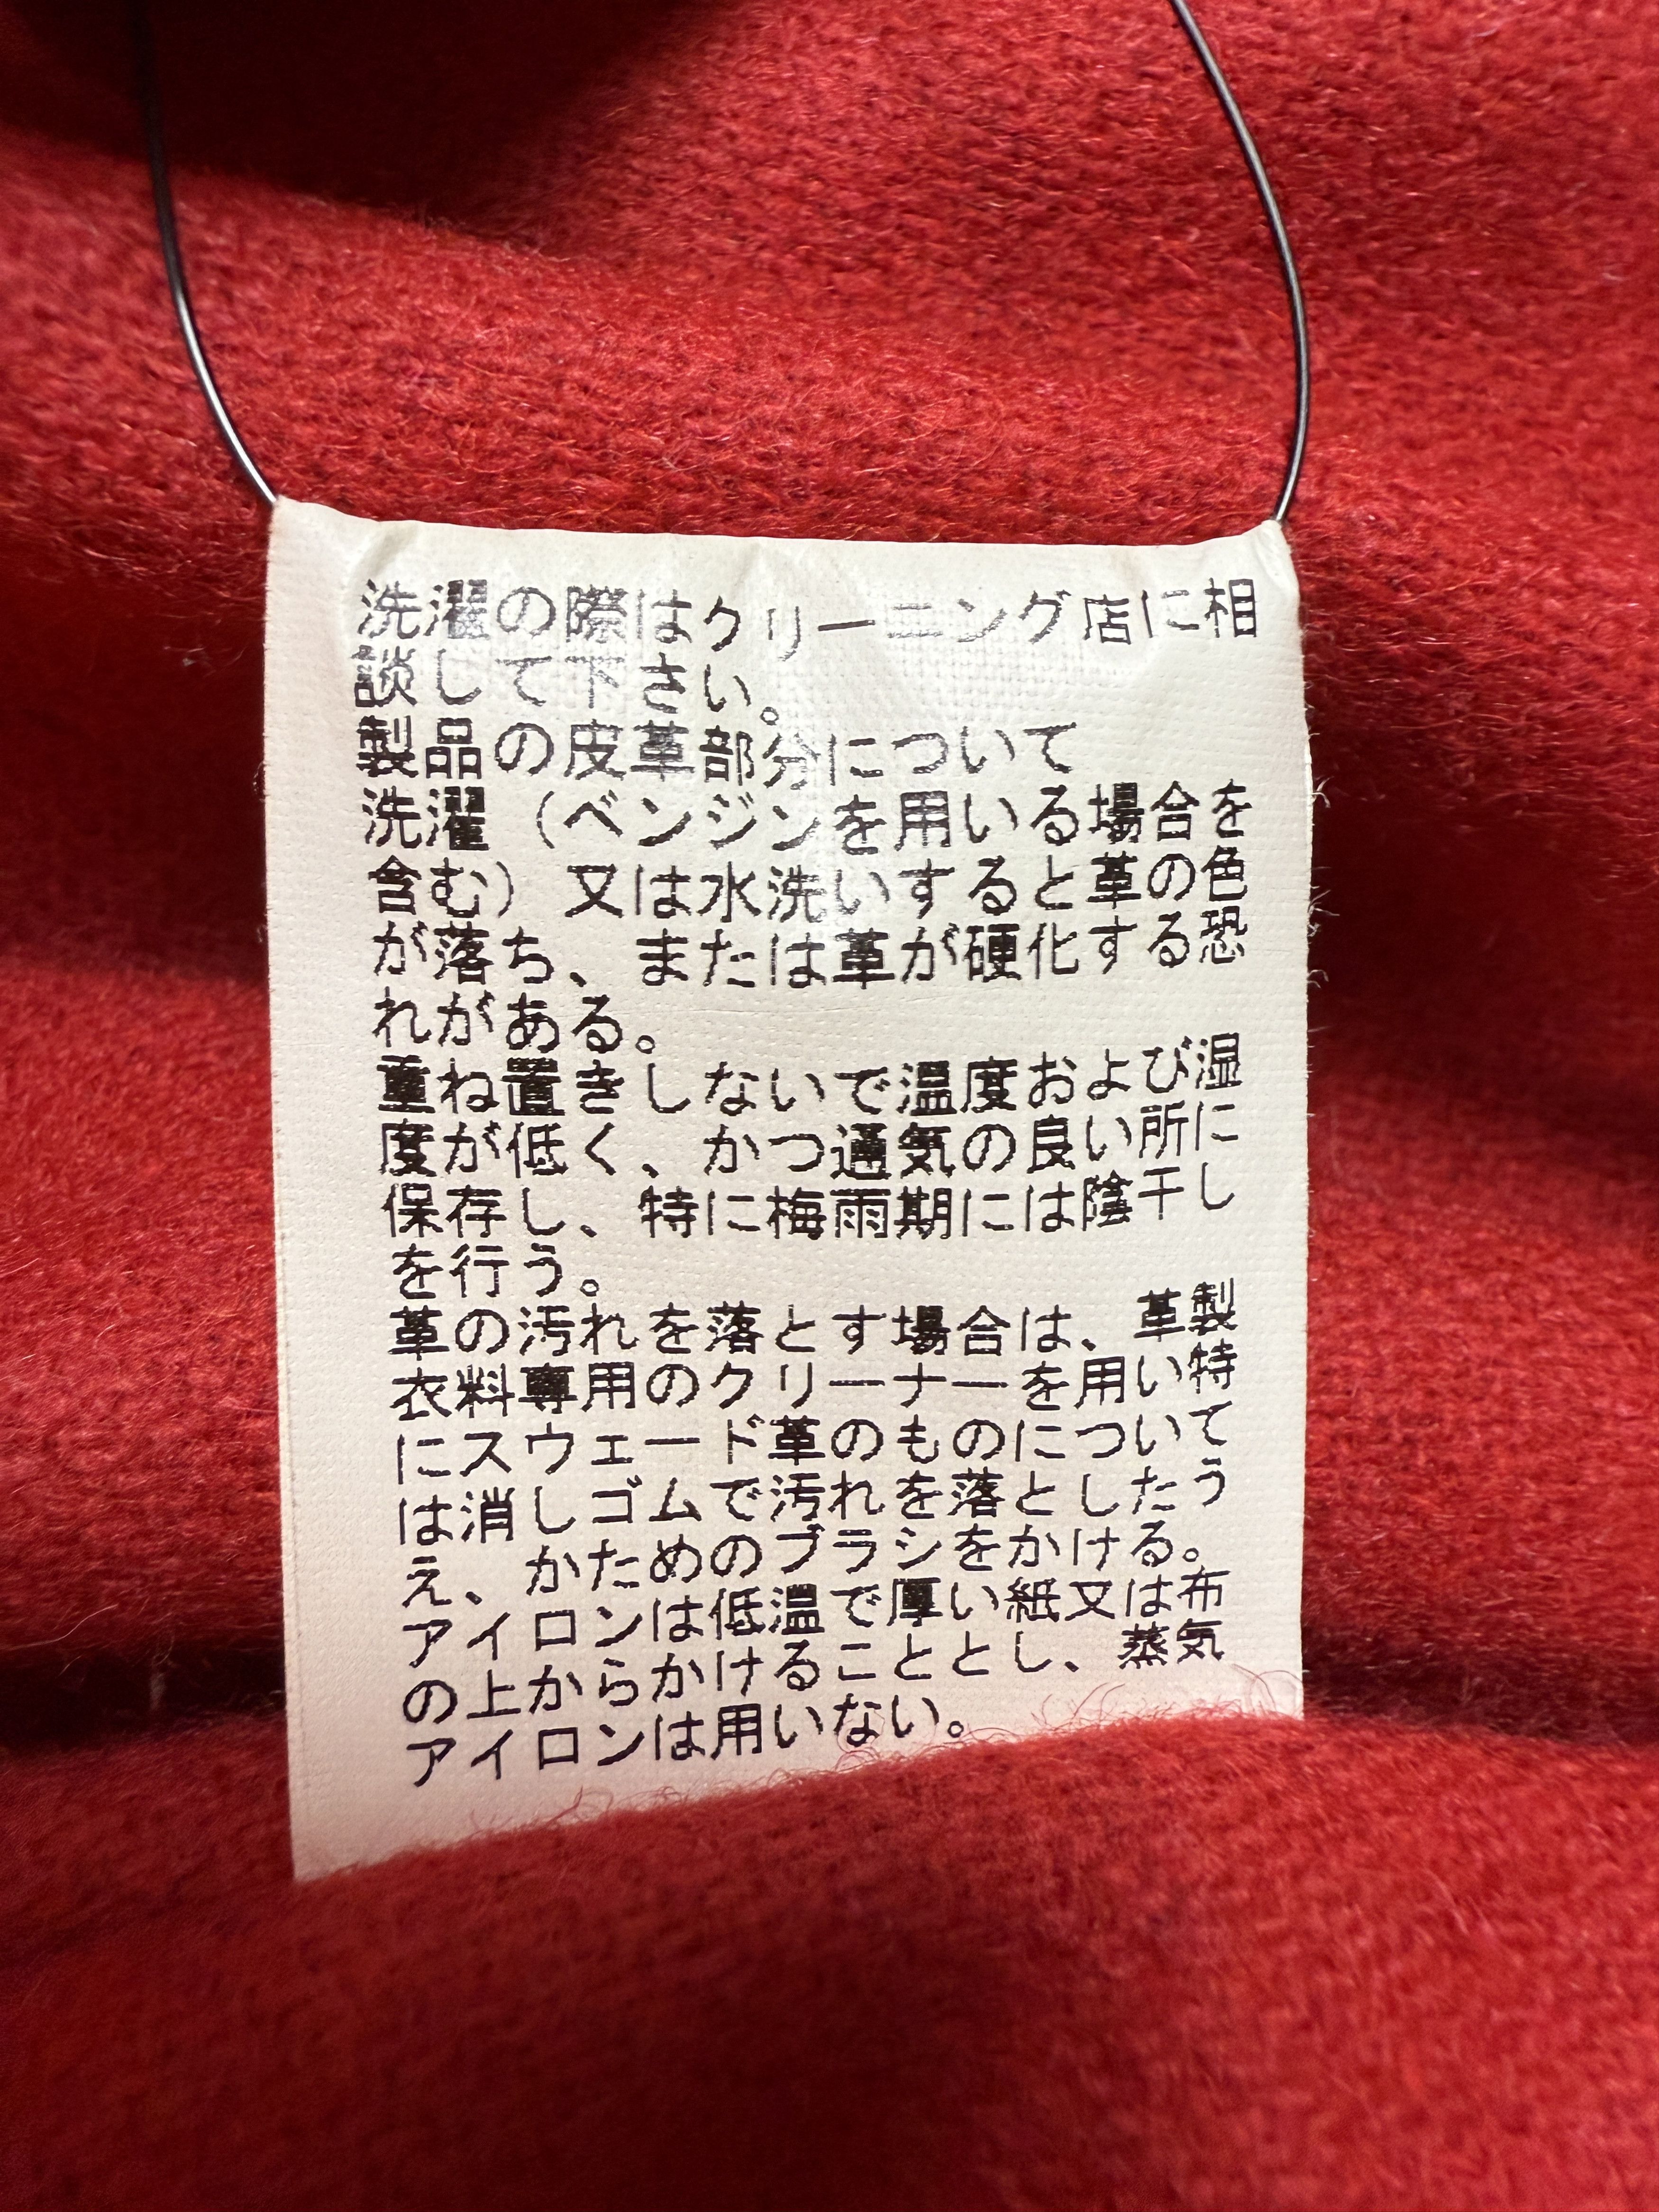 洗濯の際はクリーニング店に相
談して下さい。
製品の皮革部分について
洗濯（ベンジンを用いる場合を
含む）又は水洗いすると革の色
が落ち、または革が硬化する恐
れがある。
重ね置きしないで温度および湿
度が低く、かつ通気の良い所に
保存し、特に梅雨期には陰干し
を行う。
革の汚れを落とす場合は、革製
衣料専用のクリーナーを用い特
にスウェード革のものについて
は消しゴムで汚れを落としたう
え、かためのブラシをかける。
アイロンは低温で厚い紙又は布
の上からかけることとし、蒸気
アイロンは用いない。